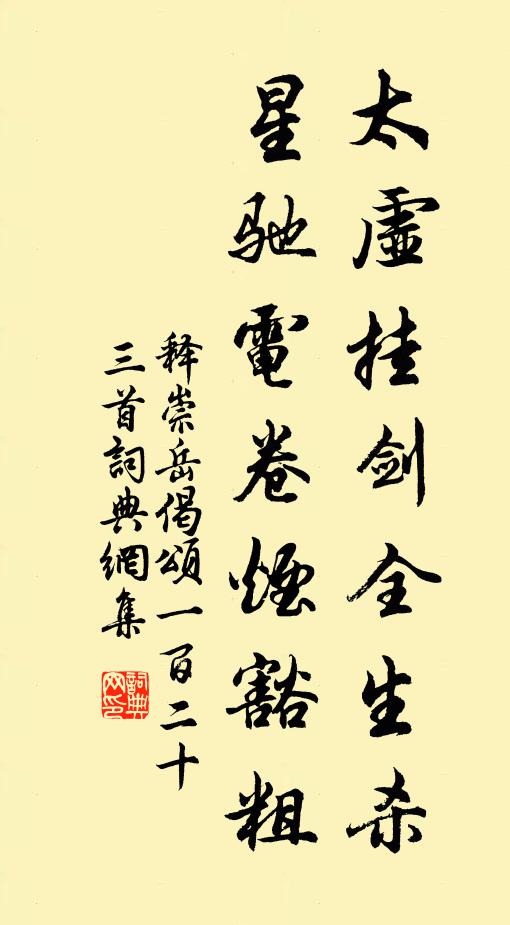 太虚挂剑全生杀
星驰電卷煙豁粗
释崇岳偈頌一百二十
三首詞典網集
詞典网印